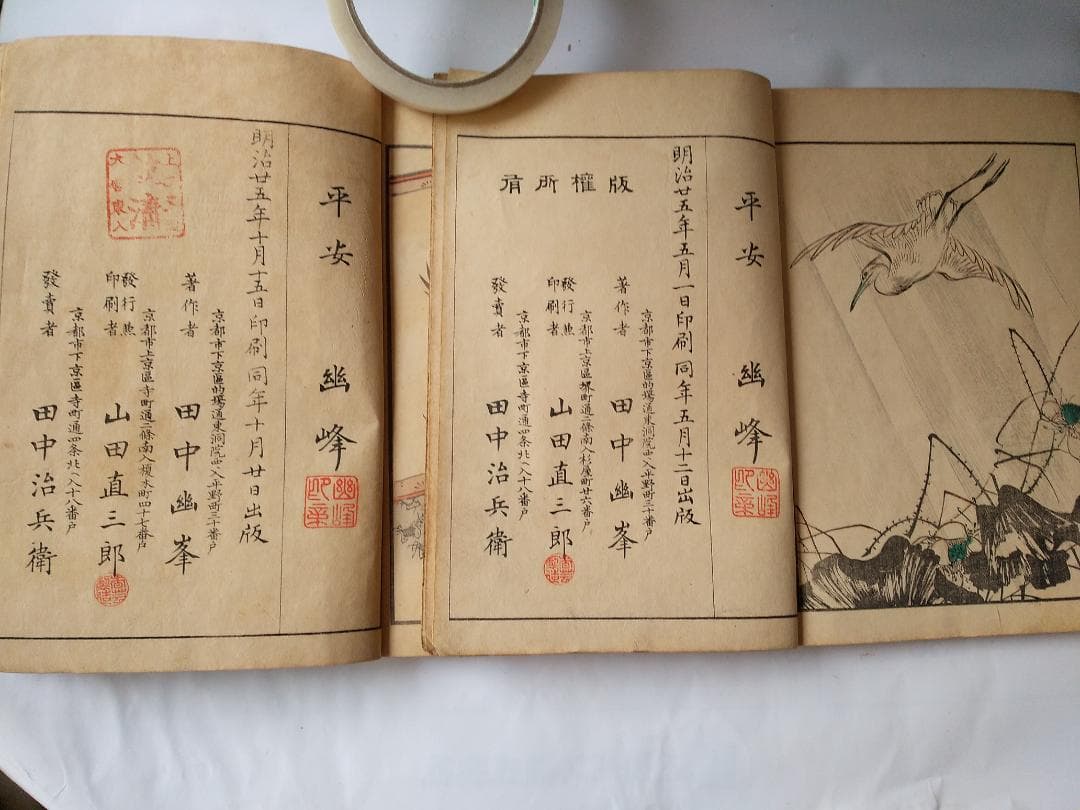 平安 幽峰
幽峰
印章
明治廿五年五月一日印刷 同年五月十二日出版
版權所有
京都市下京區的場通東洞院西入平野町三十番戸
著作者 田中幽峯
京都市上京區堺町通二條南入杉屋町廿六番戸
發行兼
印刷者 山田直三郎
京都市下京區寺町通四条北入十八番戸
發賣者 田中治兵衛
平安 幽峰
幽峰
印章
明治廿五年十月十五日印刷 同年十月廿日出版
京都市下京區的場通東洞院西入平野町三十番戸
著作者 田中幽峯
京都市上京區寺町通二條南入榎木町四十七番戸
發行兼
印刷者 山田直三郎
京都市下京區寺町通四条北入十八番戸
發賣者 田中治兵衛